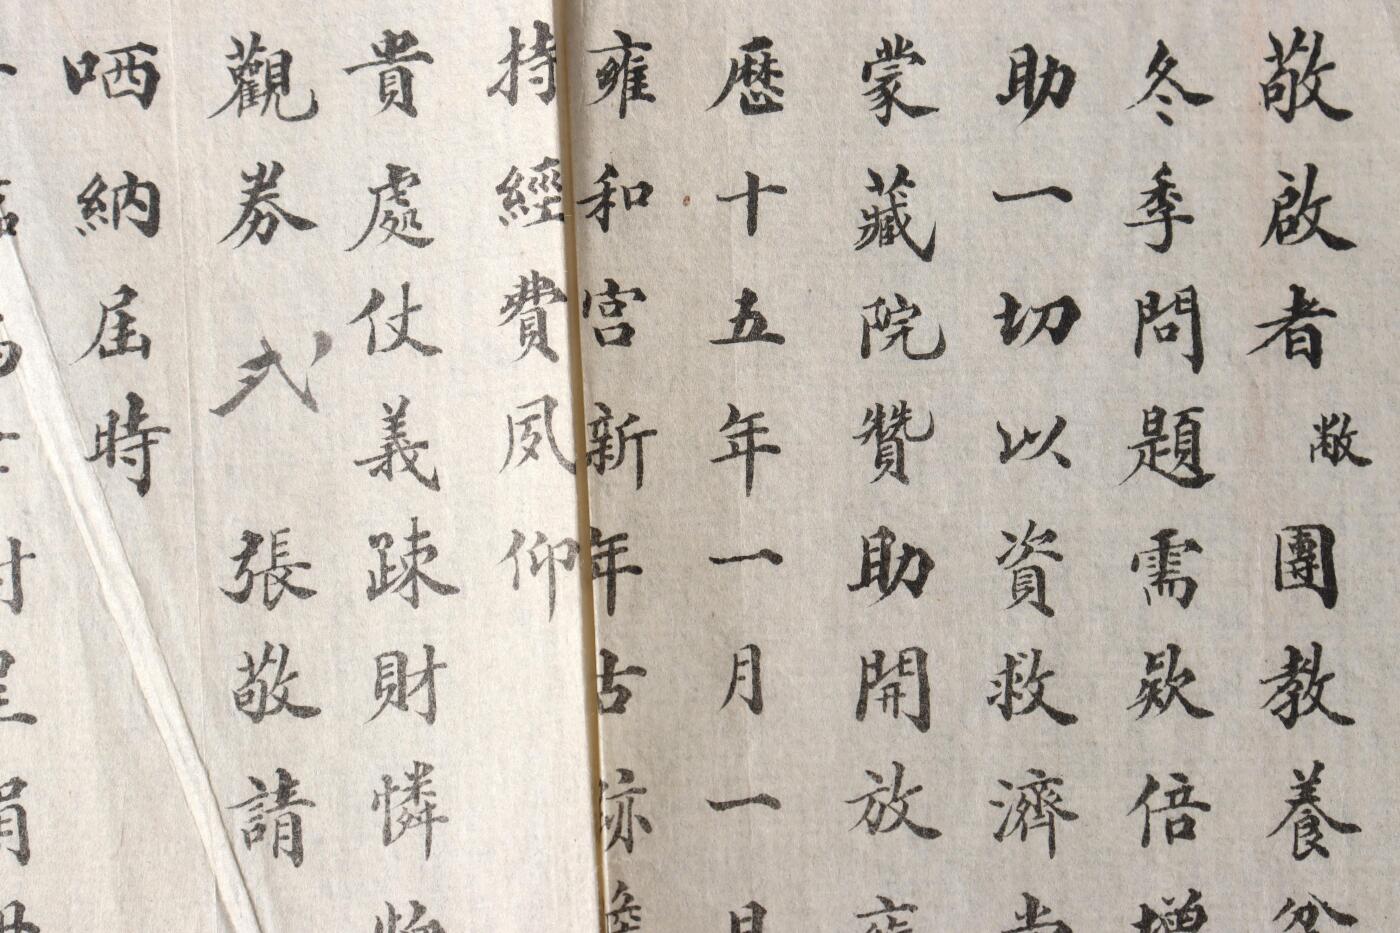 敬啟者敝團教養
冬季問題需款倍增
助一切以資救濟
蒙藏院贊助開放雍
歷十五年一月一日
雍和宮新年古
持經費夙仰
貴處仗義疎財憐
觀券弍張敬請
哂納屆時